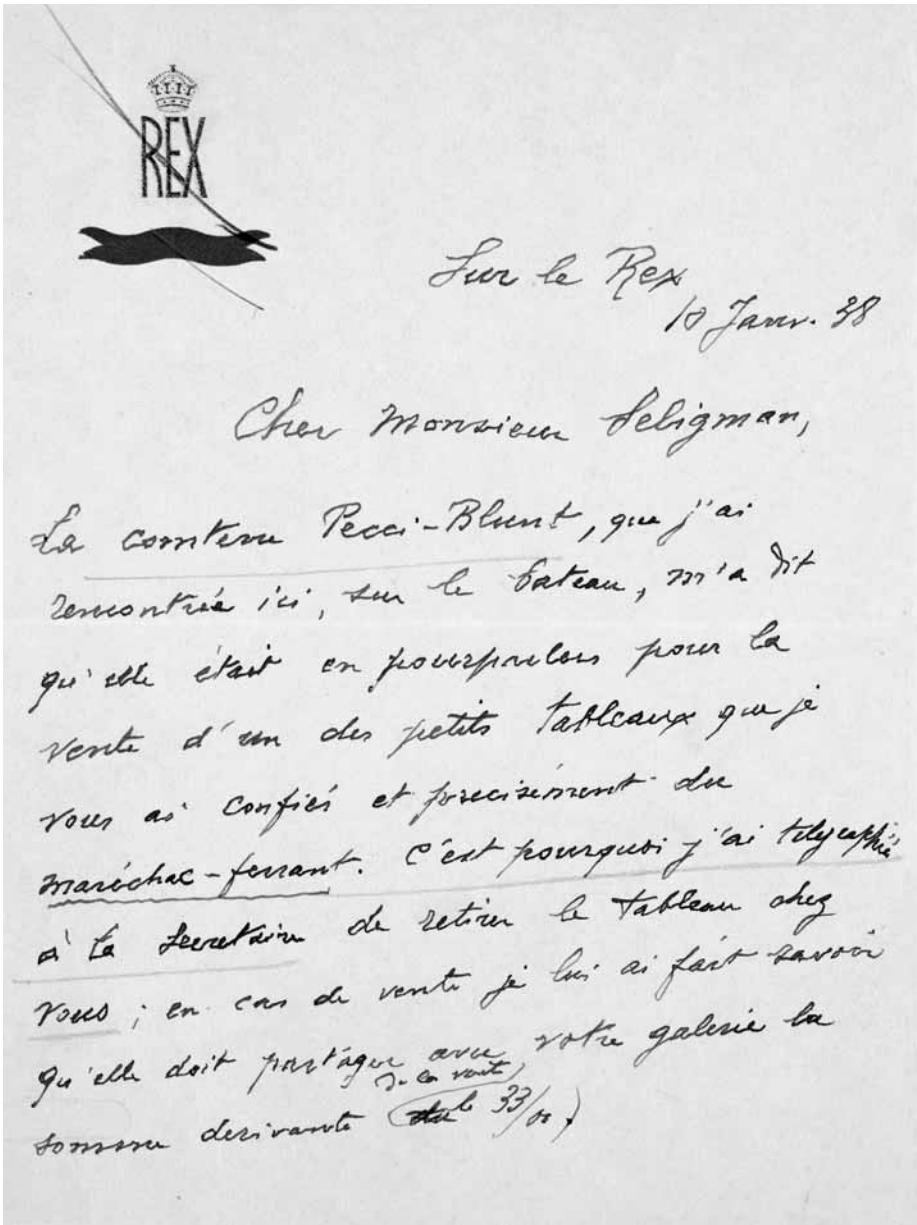 REX
Sur le Rex
10 Janv. 38
Cher Monsieur Seligman,
La comtesse Pecci-Blunt, que j'ai
rencontrée ici, sur le bateau, m'a dit
qu'elle était en pourparlers pour la
vente d'un des petits tableaux que je
vous ai confiés et precisément du
maréchal-ferrant. C'est pourquoi j'ai telegraphié
à la Secretaire de retirer le tableau chez
vous ; en cas de vente je lui ai fait savoir
qu'elle doit partager avec votre galerie la
somme derivante de la vente
(le 33/00)